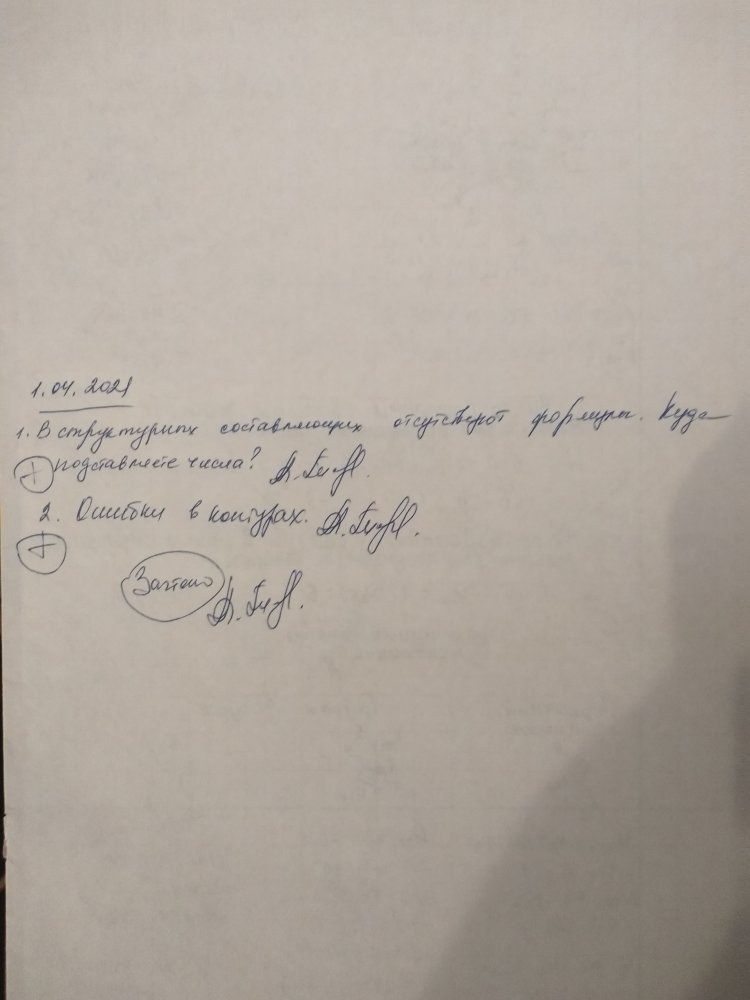 1.04.2021
1. В структурных составляющих отсутствуют формулы. Куда
+ подставляете числа?
2. Ошибки в контурах.
+
Зачтено